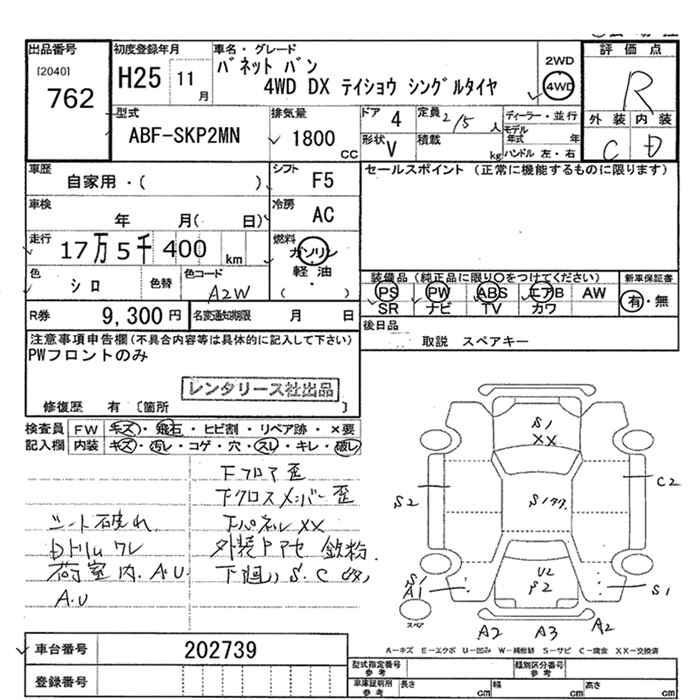 出品番号
[2040]
762
初度登録年月
H25 11月
車名・グレード
バネット バン
4WD DX テイショウ シングルタイヤ
2WD
4WD
評価点
R
外装 内装
C D
型式
ABF-SKP2MN
排気量
1800 CC
ドア 4
形状 V
定員 2/5人
積載 kg
ディーラー・並行
モデル年式 年
ハンドル 左・右
車歴
自家用・( )
シフト F5
車検 年 月( 日)
冷房 AC
走行 17万5千400km
燃料
ガソリン
軽油
( ・ )
色 シロ 色替
色コード A2W
R券 9,300円
名変通知期限 月 日
セールスポイント(正常に機能するものに限ります)
装備品(純正品に限り○をつけてください)
PS PW ABS エアB AW
SR ナビ TV カワ
新車保証書
有・無
後日品
取説 スペアキー
注意事項申告欄(不具合内容等は具体的に記入して下さい)
PWフロントのみ
レンタリース社出品
修復歴 有 [箇所
検査員記入欄
FW キズ・飛石・ヒビ割・リペア跡・×要
内装 キズ・汚レ・コゲ・穴・スレ・キレ・破レ
シート破れ
荷室内.A.U
A.U
下フロア歪
下クロスメンバー歪
下パネルXX
外装ドアセ 鉄粉
下廻り S.C
S1
XX
S2
C2
U2
S2
S1
A1
S1
スペア
A2 A3 A2
A-キズ E-エクボ U-凹み W-補修跡 S-サビ C-腐食 XX-交換済
車台番号 202739
登録番号
型式指定番号
参考
類別区分番号
参考
車庫証明用
参考
長さ cm
幅 cm
高さ cm